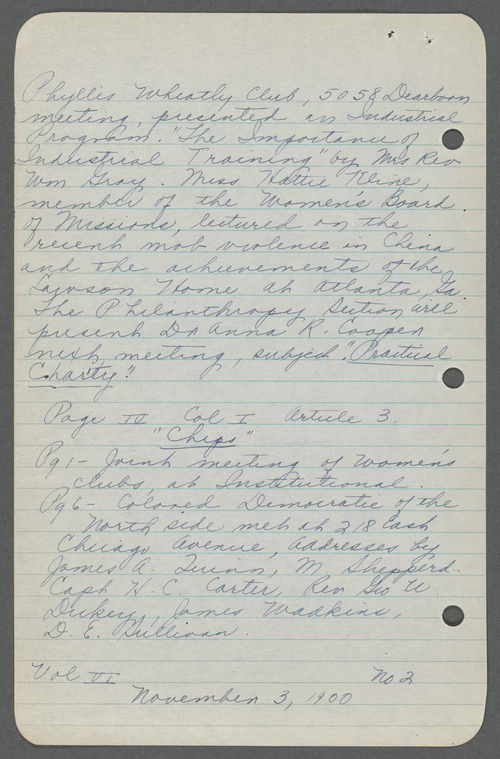 Phyllis Wheatly Club, 5058 Dearborn
meeting, presented an Industrial
Program. "The Importance of
Industrial Training" by Mrs Rev
Wm Gray. Miss Hattie Kline,
member of the Women's Board
of Missions, lectured on the
recent mob violence in China
and the achievements of the
Lawson Home at Atlanta, Ga.
The Philanthropy Section will
present Dr Anna R. Cooper
next meeting, subject "Practical
Charity".
Page IV Col I Article 3.
"Chips"
Pg 1- Joint meeting of Women's
Clubs at Institutional.
Pg 6- Colored Democratic of the
North side met at 218 East
Chicago Avenue, addresses by
James A. Quinn, M. Shepperd.
Capt H. C. Carter, Rev Geo W.
Dukey, James Wadkins,
D. E. Sullivan.
Vol VI No 2
November 3, 1900